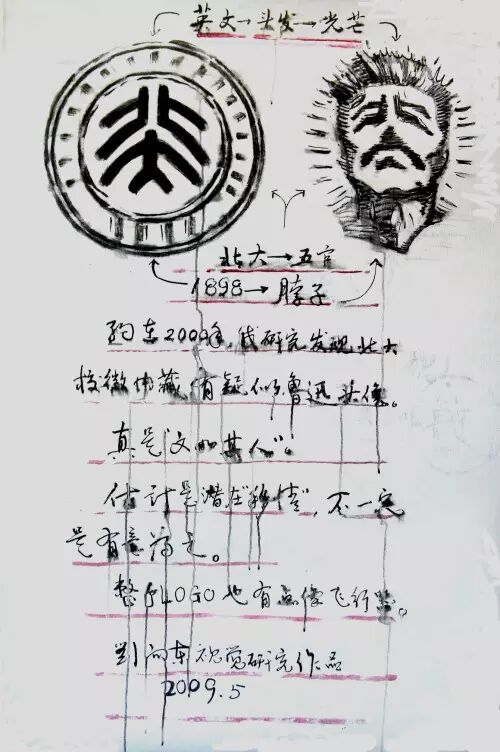 英文→头发→光芒
北大→五官
1898→脖子
约在2009年,我研究发现北大
校徽中藏有疑似鲁迅头像。
真是"文如其人"。
估计是潜在"移情",不一定
是有意为之。
整个LOGO也有点像飞行器。
刘向东视觉研究作品
2009.5